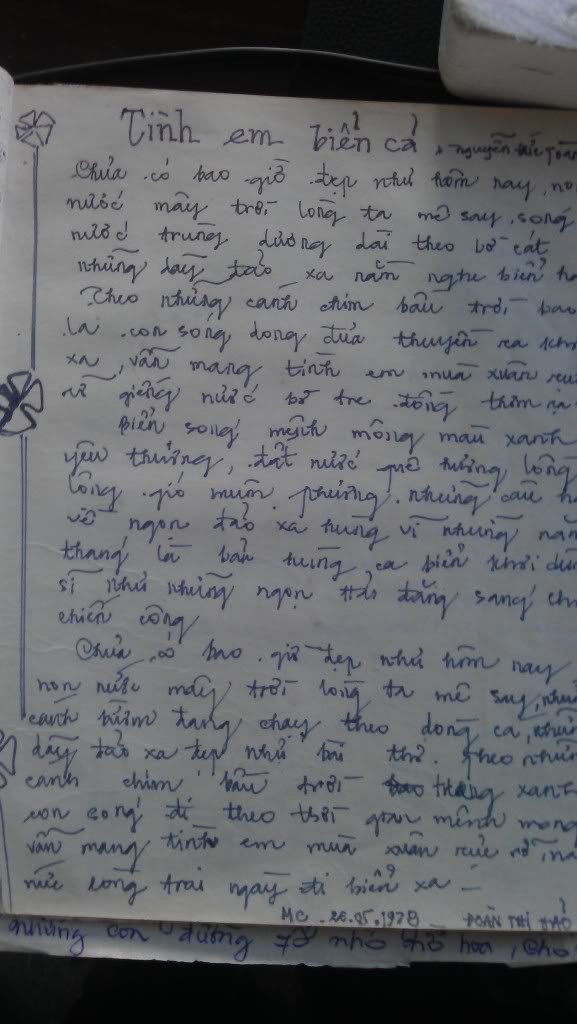 Tình em biển cả Nguyễn Đức Toàn
Chưa có bao giờ đẹp như hôm nay, no
nước mây trời lòng ta mê say, sóng
nước trùng dương dài theo bờ cát
những dãy đảo xa nằm nghe biển h
Theo những cánh chim bầu trời bao
la con sóng dong đưa thuyền ra kh
xa, vẫn mang tình em mùa xuân rự
vì giếng nước bờ tre đồng thơm
Biển sóng mênh mông màu xanh
yêu thương, đất nước quê hương lồng
lộng gió muôn phương những câu h
về ngọn đảo xa từng vì những năm
tháng là bản hùng ca biển khơi dũn
sĩ như những ngọn Hải đăng sáng ch
chiến công
Chưa có bao giờ đẹp như hôm nay
non nước mây trời lòng ta mê say, nhữ
cánh buồm đang chạy theo dòng ca, nhữn
dãy đảo xa đẹp như bài thơ. Theo nhữn
cánh chim bầu trời tháng xanh
con sóng đi theo thời gian mênh mong
vẫn mang tình em mùa xuân rực rỡ, ná
nức lòng trai ngày đi biển xa –
MC - 26.05.1978 - ĐOÀN THỊ HẢO
những con đường nhỏ hoa, cho